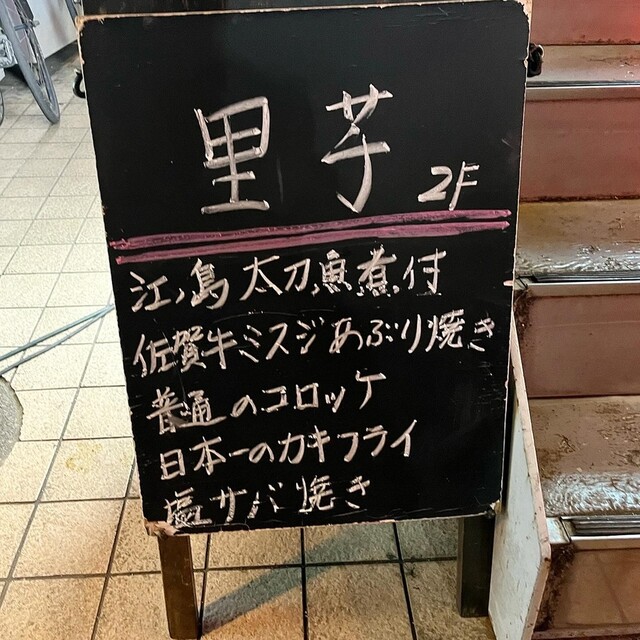 里芋 2F
江ノ島太刀魚煮付
佐賀牛ミスジあぶり焼き
普通のコロッケ
日本一のカキフライ
塩サバ焼き